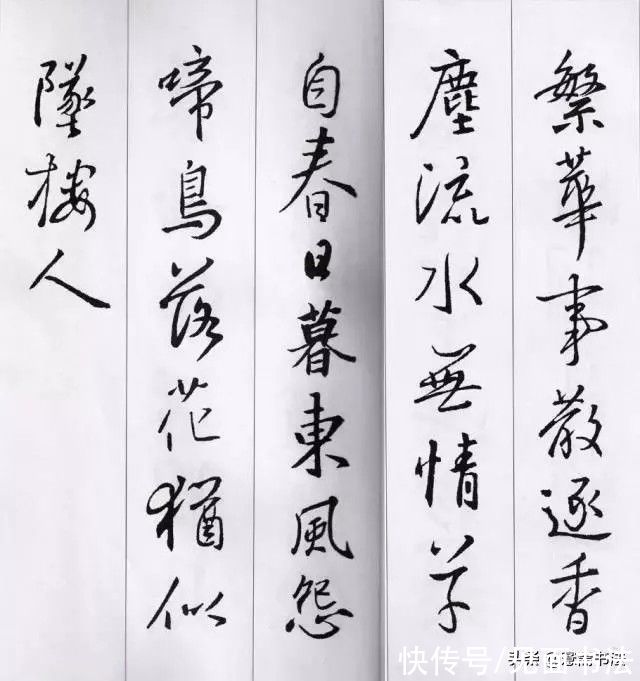 繁華事散逐香
塵流水無情草
自春日暮東風怨
啼鳥落花猶似
墜樓人
快传号/
头条
书法